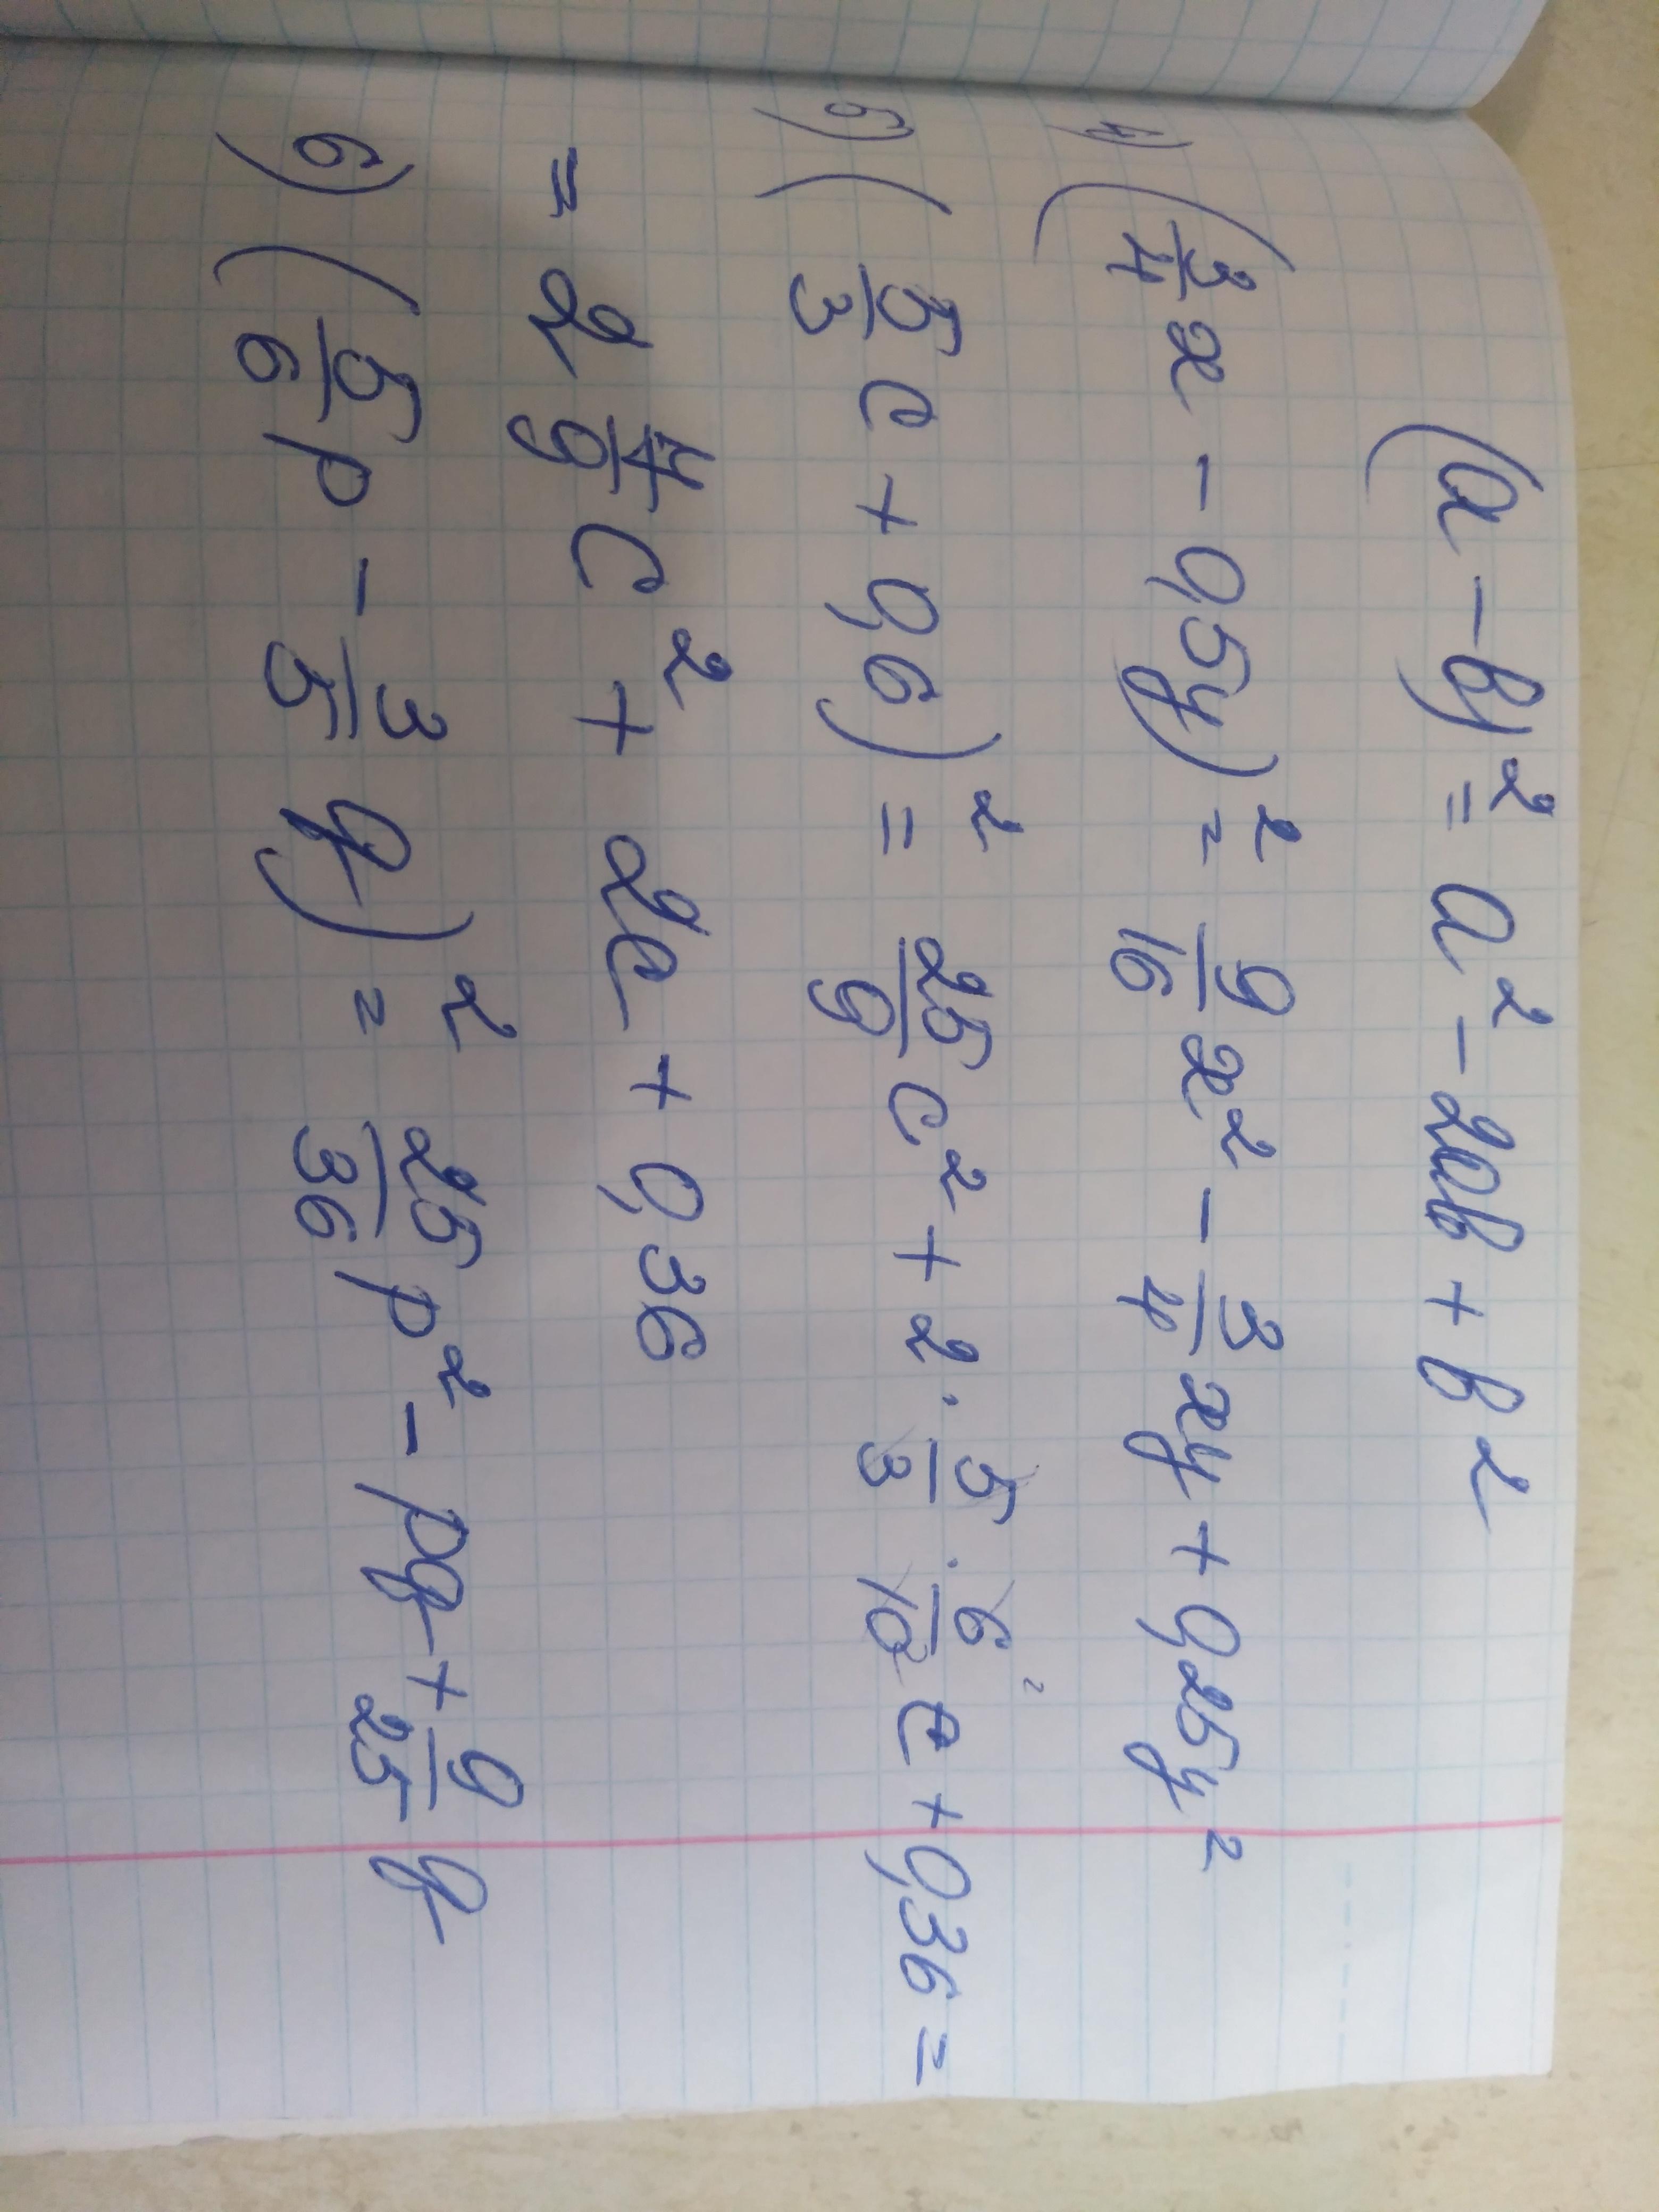 (a - b)² = a² - 2ab + b²
а) (3/4 x - 0,5y)² = 9/16 x² - 3/4 xy + 0,25y²
б) (5/3 c + 0,6)² = 25/9 c² + 2 · 5/3 · 6/10 c + 0,36 =
= 2 7/9 c² + 2c + 0,36
в) (5/6 p - 3/5 q)² = 25/36 p² - pq + 9/25 q